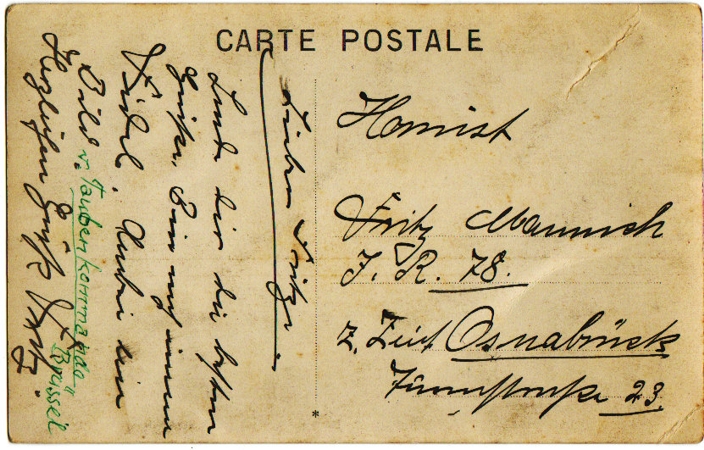 CARTE POSTALE
Lieber Fritz
Sende dir die besten
Grüße. Bin noch immer
Fidel. Anbei ein
Bild.
Herzlichen Gruß Fritz
v. Taubenkommando
Brüssel
Hornist
Fritz Mannich
J. R. 78.
z. Zeit Osnabrück
23.
*